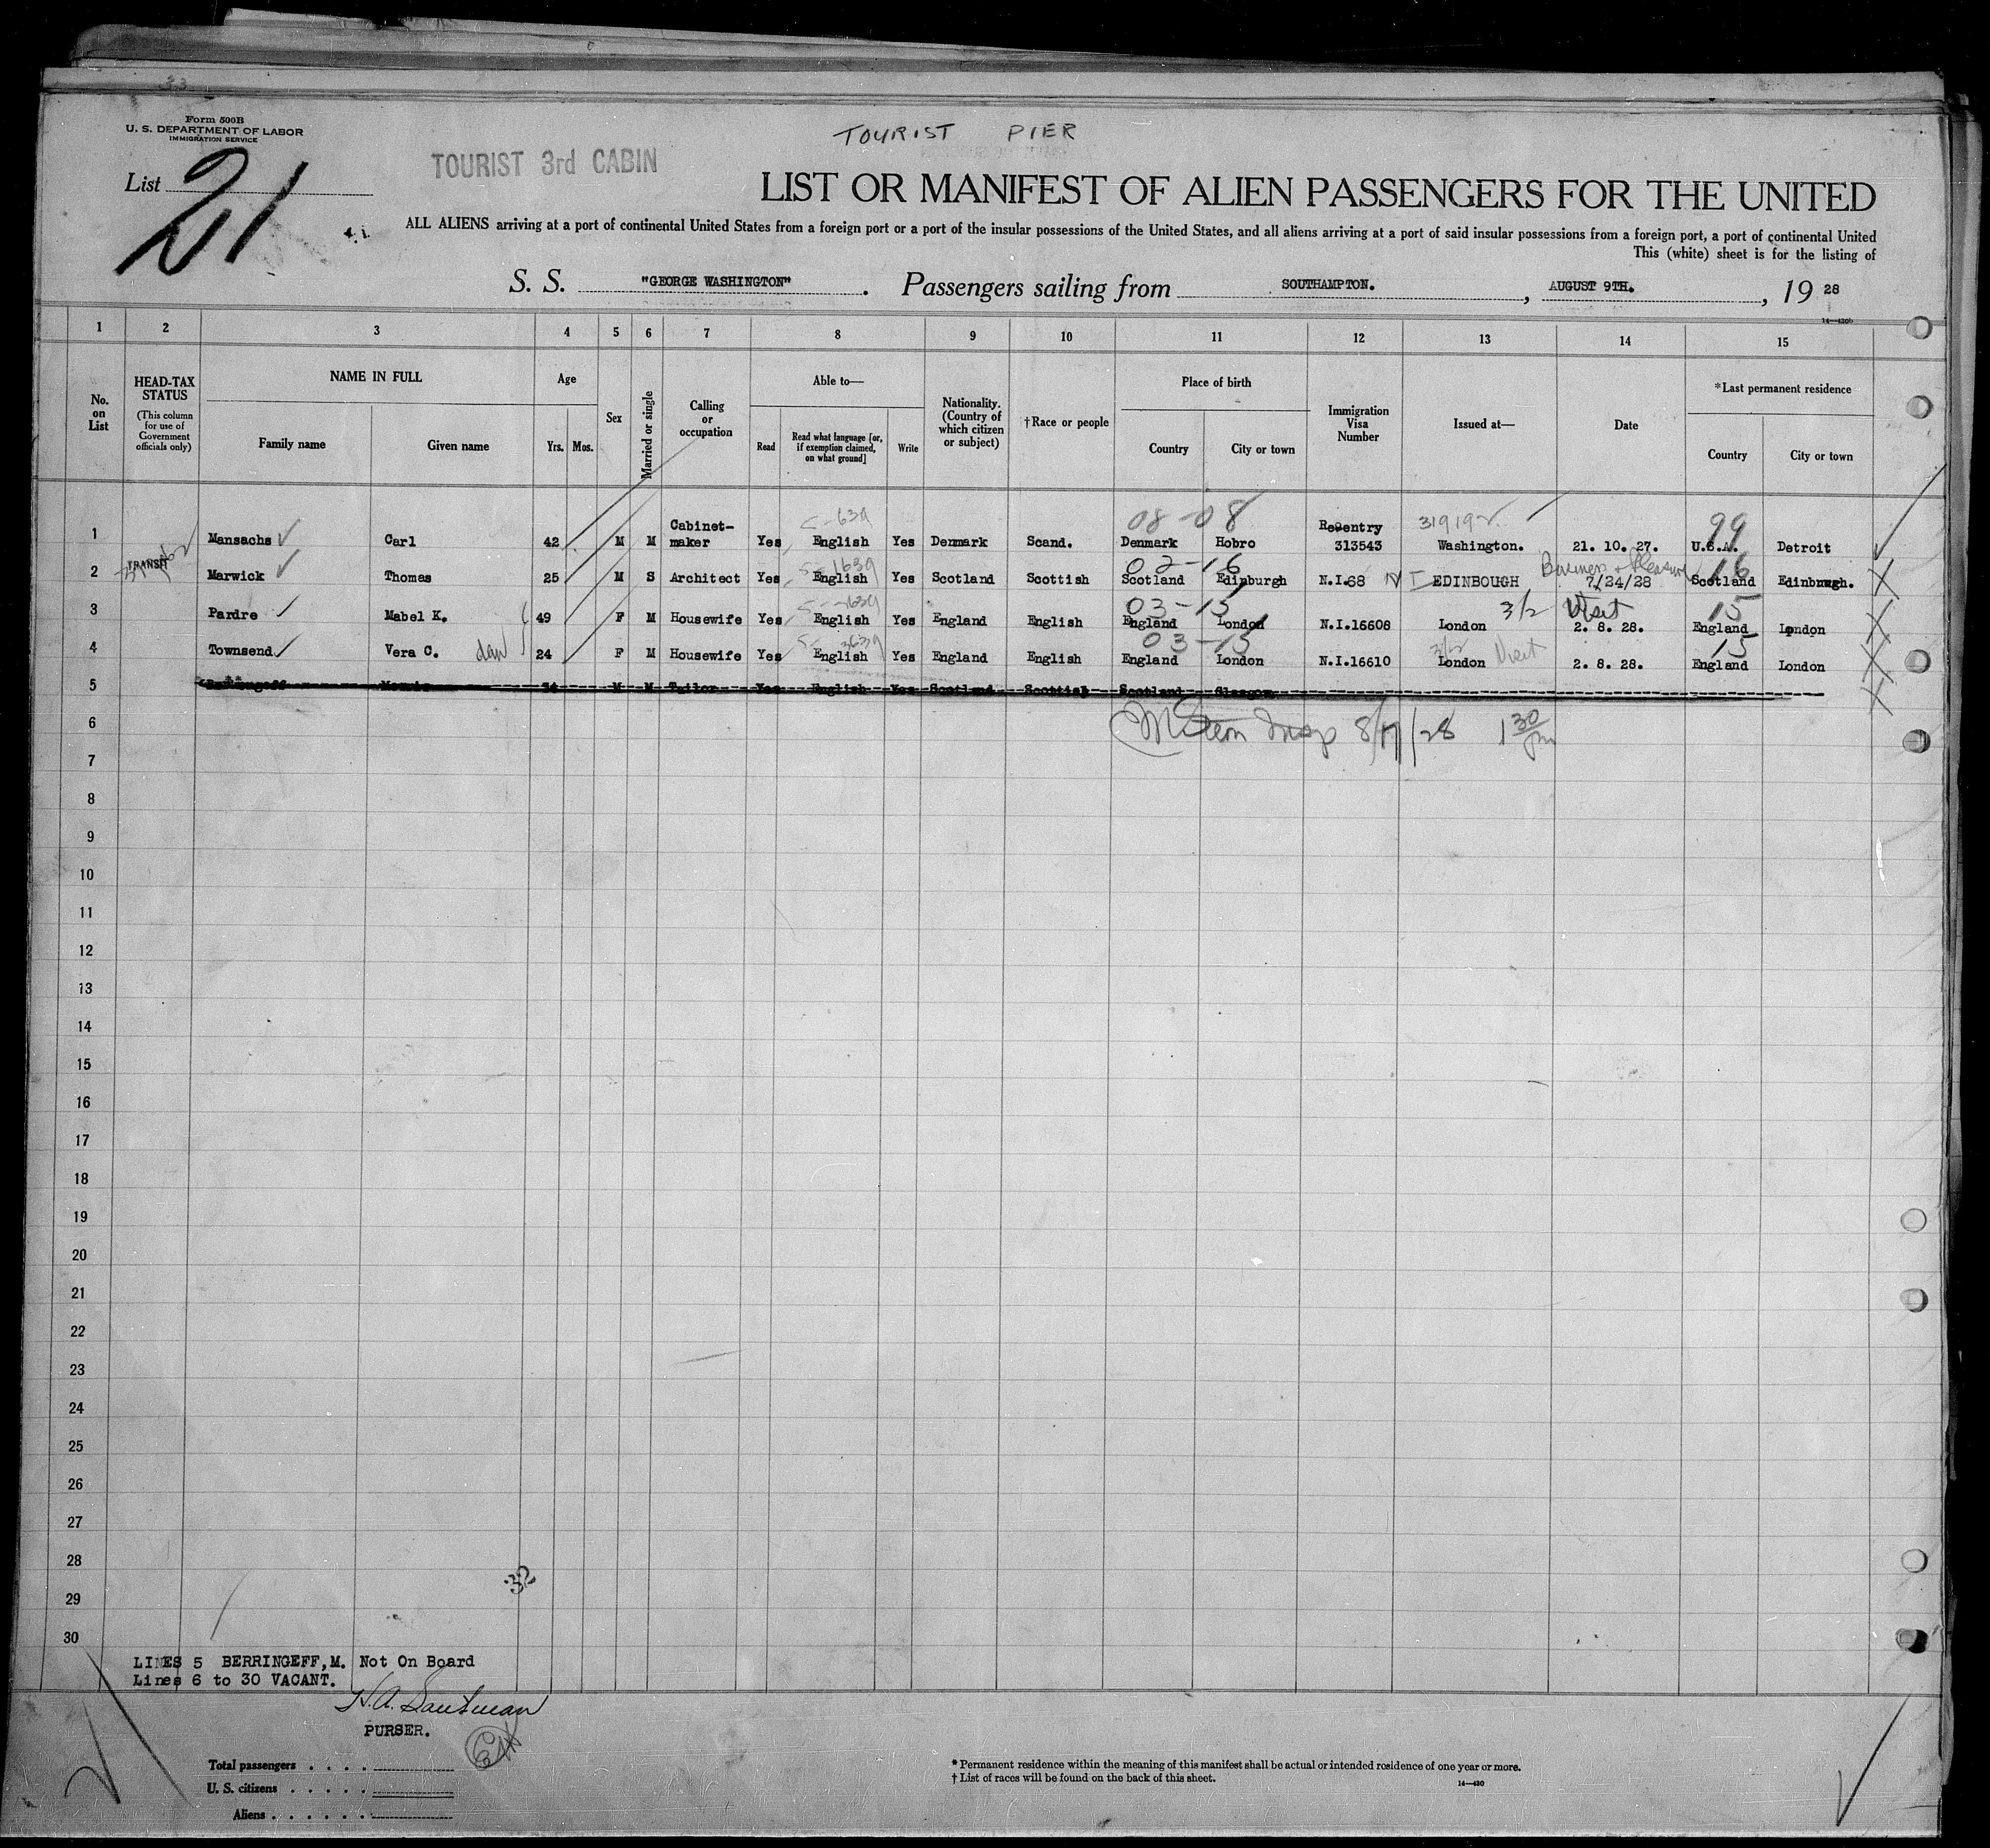 33
Form 500B
U. S. DEPARTMENT OF LABOR
IMMIGRATION SERVICE
TOURIST PIER
TOURIST 3rd CABIN
List 21
LIST OR MANIFEST OF ALIEN PASSENGERS FOR THE UNITED
ALL ALIENS arriving at a port of continental United States from a foreign port or a port of the insular possessions of the United States, and all aliens arriving at a port of said insular possessions from a foreign port, a port of continental United
This (white) sheet is for the listing of
S. S. "GEORGE WASHINGTON" . Passengers sailing from SOUTHAMPTON. , AUGUST 9TH. , 19 28
14—420b
1 2 3 4 5 6 7 8 9 10 11 12 13 14 15
No. on List
HEAD-TAX STATUS (This column for use of Government officials only)
NAME IN FULL
Family name Given name
Age
Yrs. Mos.
Sex
Married or single
Calling or occupation
Able to—
Read Read what language [or, if exemption claimed, on what ground] Write
Nationality. (Country of which citizen or subject)
†Race or people
Place of birth
Country City or town
Immigration Visa Number
Issued at—
Date
*Last permanent residence
Country City or town
5-639 08-08 319192 99
1 Mansachs Carl 42 M M Cabinet-maker Yes English Yes Denmark Scand. Denmark Hobro Reentry 313543 Washington. 21. 10. 27. U.S.A. Detroit
TRANSIT 5-1639 02-16 Business & Pleasure 16
2 Marwick Thomas 25 M S Architect Yes English Yes Scotland Scottish Scotland Edinburgh N.I.68 EDINBOUGH 7/24/28 Scotland Edinbrugh.
03-15 3/2 Visit 15
3 Pardre Mabel K. 49 F M Housewife Yes English Yes England English England London N.I.16608 London 2. 8. 28. England London
5-3639 03-15 3/2 Visit 15
4 Townsend Vera C. dau 24 F M Housewife Yes English Yes England English England London N.I.16610 London 2. 8. 28. England London
5 Morris 34 M M Tailor Yes English Yes Scotland Scottish Scotland Glasgow
6 Insp 8/17/28 1 30 pm
7
8
9
10
11
12
13
14
15
16
17
18
19
20
21
22
23
24
25
26
27
28
32
29
30
LINES 5 BERRINGEFF,M. Not On Board
Lines 6 to 30 VACANT.
PURSER.
Total passengers . . . .
U. S. citizens . . . . .
Aliens . . . . . .
* Permanent residence within the meaning of this manifest shall be actual or intended residence of one year or more.
† List of races will be found on the back of this sheet.
14—420